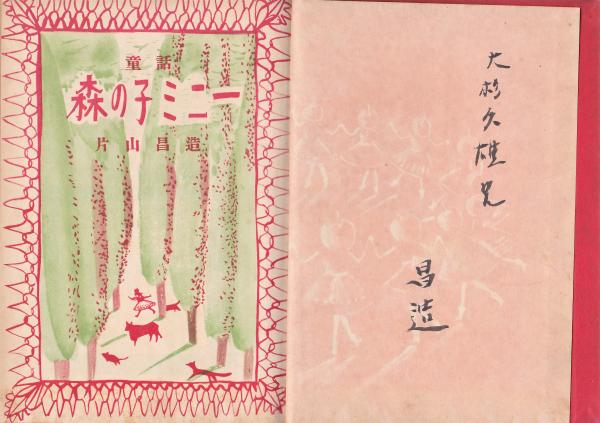 童話
森の子ミニー
片山昌造
大杉久雄兄
昌造